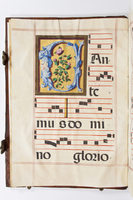 Can
te
mus do mi
no glorio